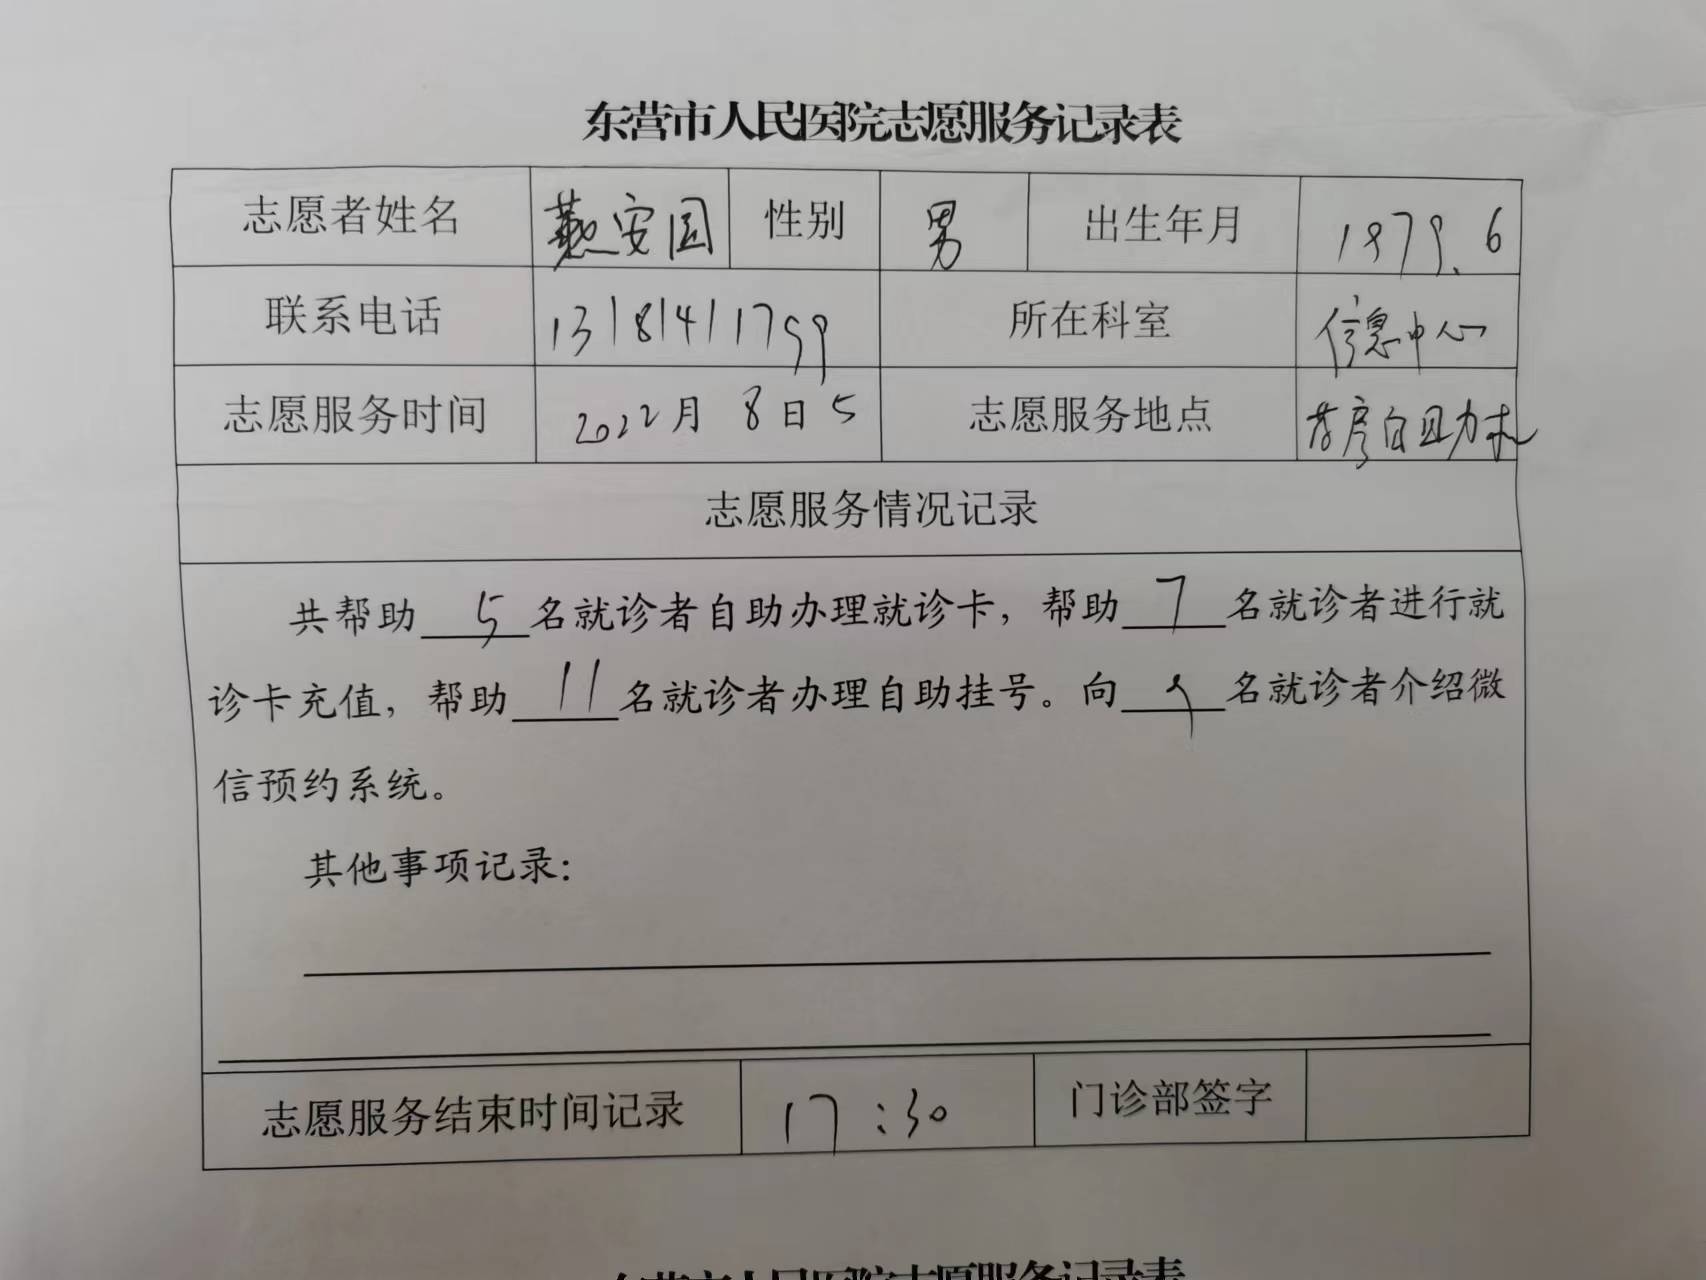 东营市人民医院志愿服务记录表
志愿者姓名 安国 性别 男 出生年月 1979.6
联系电话 13181411799 所在科室 信息中心
志愿服务时间 2022月 8日5 志愿服务地点 药房自助机
志愿服务情况记录
共帮助 5 名就诊者自助办理就诊卡，帮助 7 名就诊者进行就
诊卡充值，帮助 11 名就诊者办理自助挂号。向 9 名就诊者介绍微
信预约系统。
其他事项记录：
志愿服务结束时间记录 17:30 门诊部签字
东营市人民医院志愿服务记录表